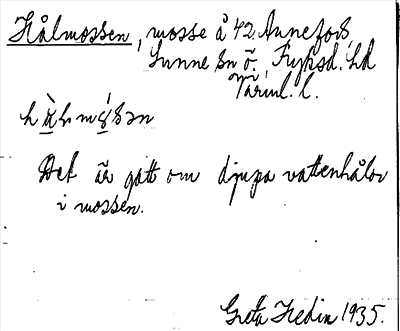 Hålmossen, mosse å 42 Annefors,
Sunne sn ö. Fryksd. hd
Värml. l.
Det är gått om djupa vattenhålor
i mossen.
Greta Hedin 1935.